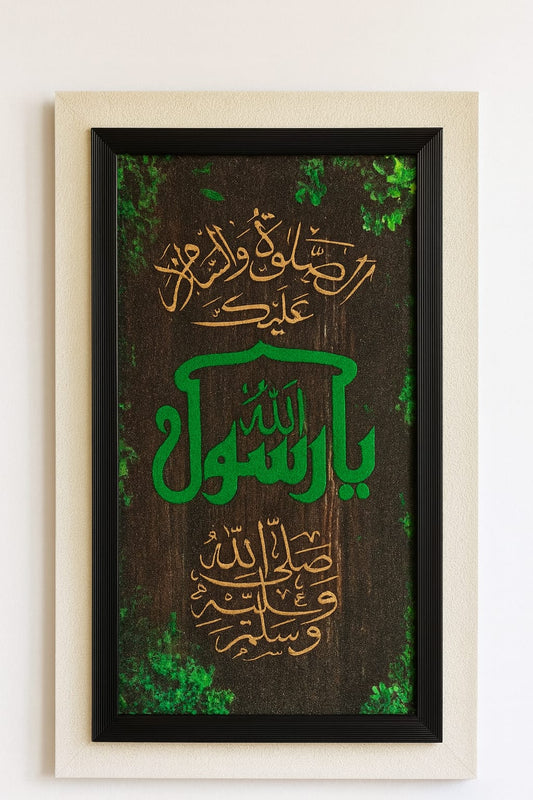 الصَّلوٰةُ وَالسَّلَامُ
عَلَيْكَ
يا رسول اللّٰه
صَلَّى اللّٰه
وَسَلَّمَ